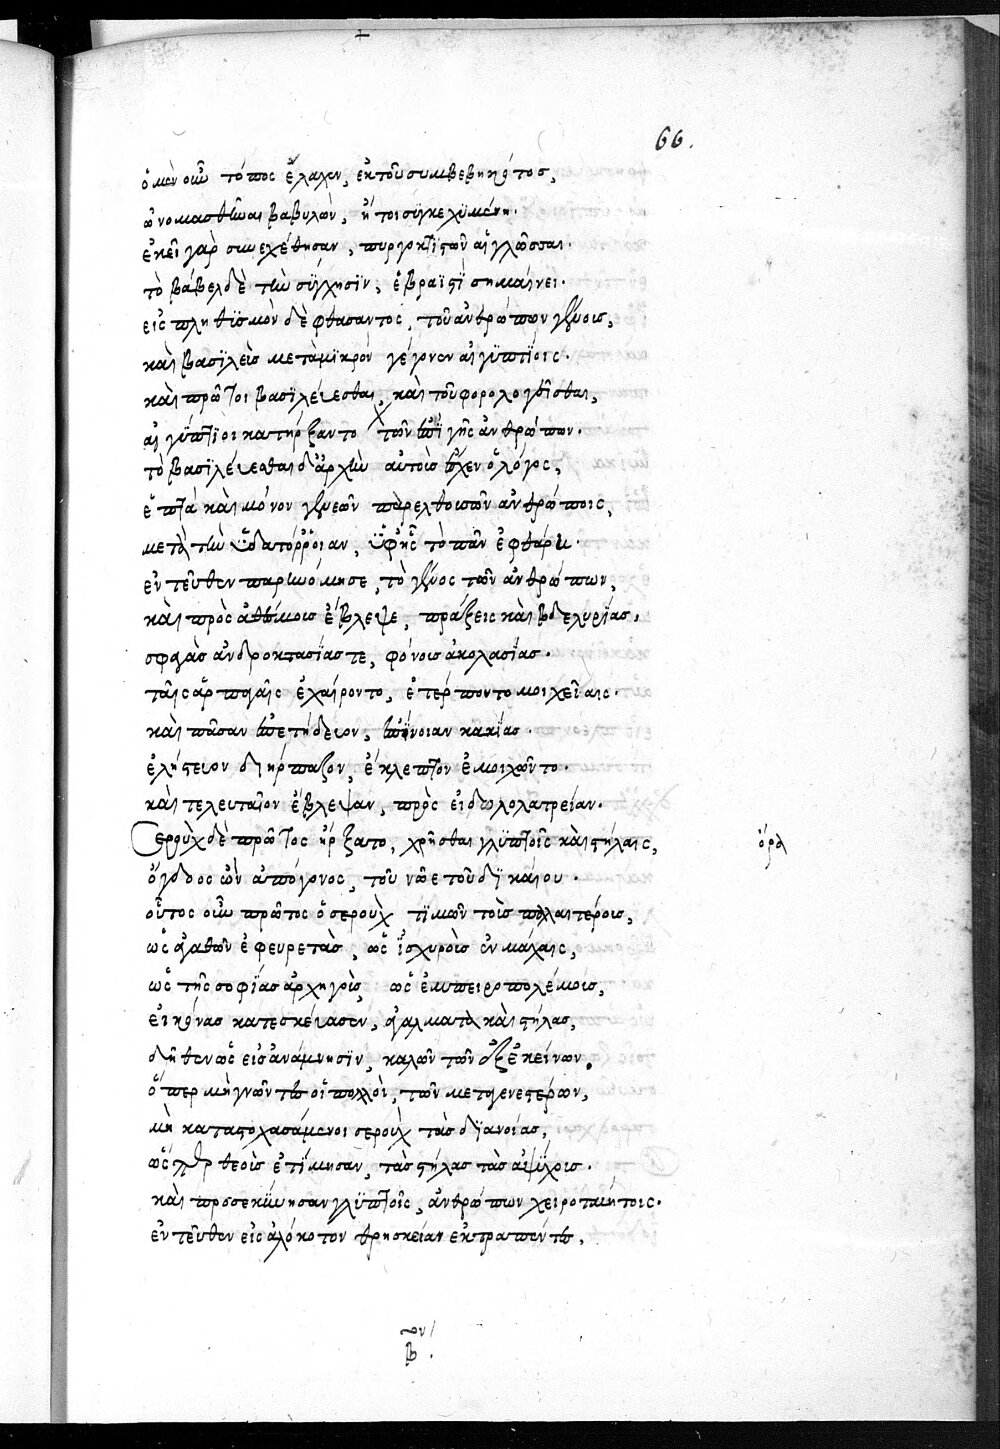 66.
ὁ μὲν οὖν τόπος ἔλαχεν, ἐκ τοῦ συμβεβηκότος,
ὠνομασθῆναι βαβυλὼν, ἤτοι συγκεχυμένη.
ἐκεῖ γὰρ συνεχέθησαν, πυργοκτιστῶν αἱ γλῶσσαι.
τὸ βάβελ δὲ τὴν σύγχησιν, ἑβραϊστὶ σημαίνει.
εἰς πληθισμὸν δὲ φθάσαντος, τοῦ ἀνθρώπων γένους,
καὶ βασιλεῖς μετὰ μικρὸν γέγονεν αἰγυπτίοις.
καὶ πρῶτοι βασιλεύεσθαι, καὶ τοῦ φορολογεῖσθαι,
αἰγύπτιοι κατήρξαντο τῶν ἐπὶ γῆς ἀνθρώπων.
τὸ βασιλεύεσθαι δ' ἀρχὴν αὐτοὺς ἔχεν ὁ λόγος,
ἑπτὰ καὶ μόνον γενεῶν παρελθουσῶν ἀνθρώποις,
μετὰ τὴν ὑδατόρροιαν, ὑφ' ἧς τὸ πᾶν ἐφθάρη.
ἐντεῦθεν παρηνόμησε, τὸ γένος τῶν ἀνθρώπων,
καὶ πρὸς ἀθέσμους ἔβλεψε, πράξεις καὶ βδελυρίας,
σφαγὰς ἀνδροκτασίας τε, φόνους ἀκολασίας.
ταῖς ἁρπαγαῖς ἐχαίροντο, ἐτέρποντο μοιχείαις.
καὶ πᾶσαν ἐπετήδευον, ἐπίνοιαν κακίας.
ἐλῄστευον διήρπαζον, ἔκλεπτον ἐμοιχῶντο.
καὶ τελευταῖον ἔβλεψαν, πρὸς εἰδωλολατρείαν.
Σεροὺχ δὲ πρῶτος ἤρξατο, χρῆσθαι γλυπτοῖς καὶ στήλαις,
ὄγδοος ὢν ἀπόγονος, τοῦ νῶε τοῦ δικαίου.
οὗτος οὖν πρῶτος ὁ σεροὺχ τιμῶν τοὺς παλαιτέρους,
ὡς ἀγαθῶν ἐφευρετὰς, ὡς ἰσχυροὺς ἐν μάχαις,
ὡς τῆς σοφίας ἀρχηγοὺς, ὡς ἐμπειροπολέμους,
εἰκόνας κατεσκεύασεν, ἀγάλματα καὶ στήλας,
δῆθεν ὡς εἰς ἀνάμνησιν, καλῶν τῶν ἐξ ἐκείνων.
ὅπερ μὴ γνῶντες οἱ πολλοὶ, τῶν μεταγενεστέρων,
μὴ καταστοχασάμενοι σεροὺχ τὰς διανοίας,
ὥσπερ θεοὺς ἐτίμησαν, τὰς στήλας τὰς ἀψύχους.
καὶ προσεκύνησαν γλυπτοῖς, ἀνθρώπων χειροποιήτοις.
ἐντεῦθεν εἰς ἀλόκοτον θρησκείαν ἐκτραπέντες,
ὅρα
β.